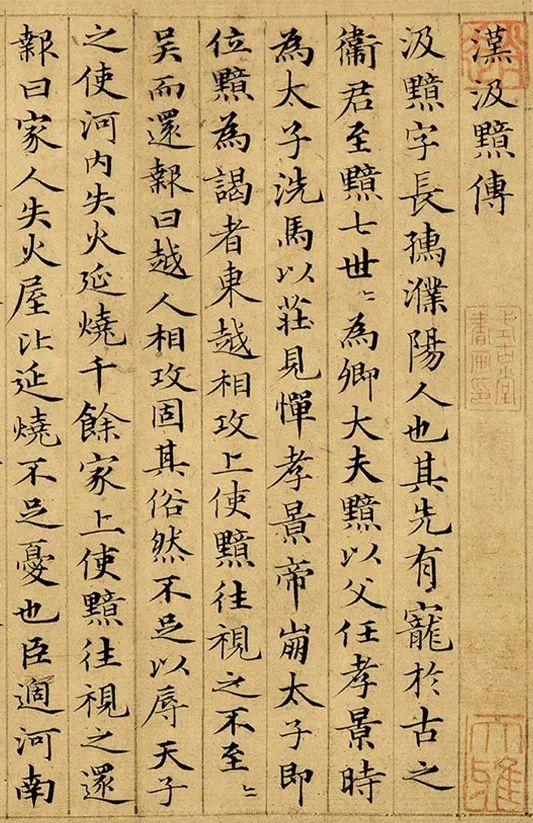 漢汲黯傳
汲黯字長孺濮陽人也其先有寵於古之
衛君至黯七世〻為卿大夫黯以父任孝景時
為太子洗馬以莊見憚孝景帝崩太子即
位黯為謁者東越相攻上使黯往視之不至〻
吴而還報曰越人相攻固其俗然不足以辱天子
之使河内失火延燒千餘家上使黯往視之還
報曰家人失火屋比延燒不足憂也臣適河南